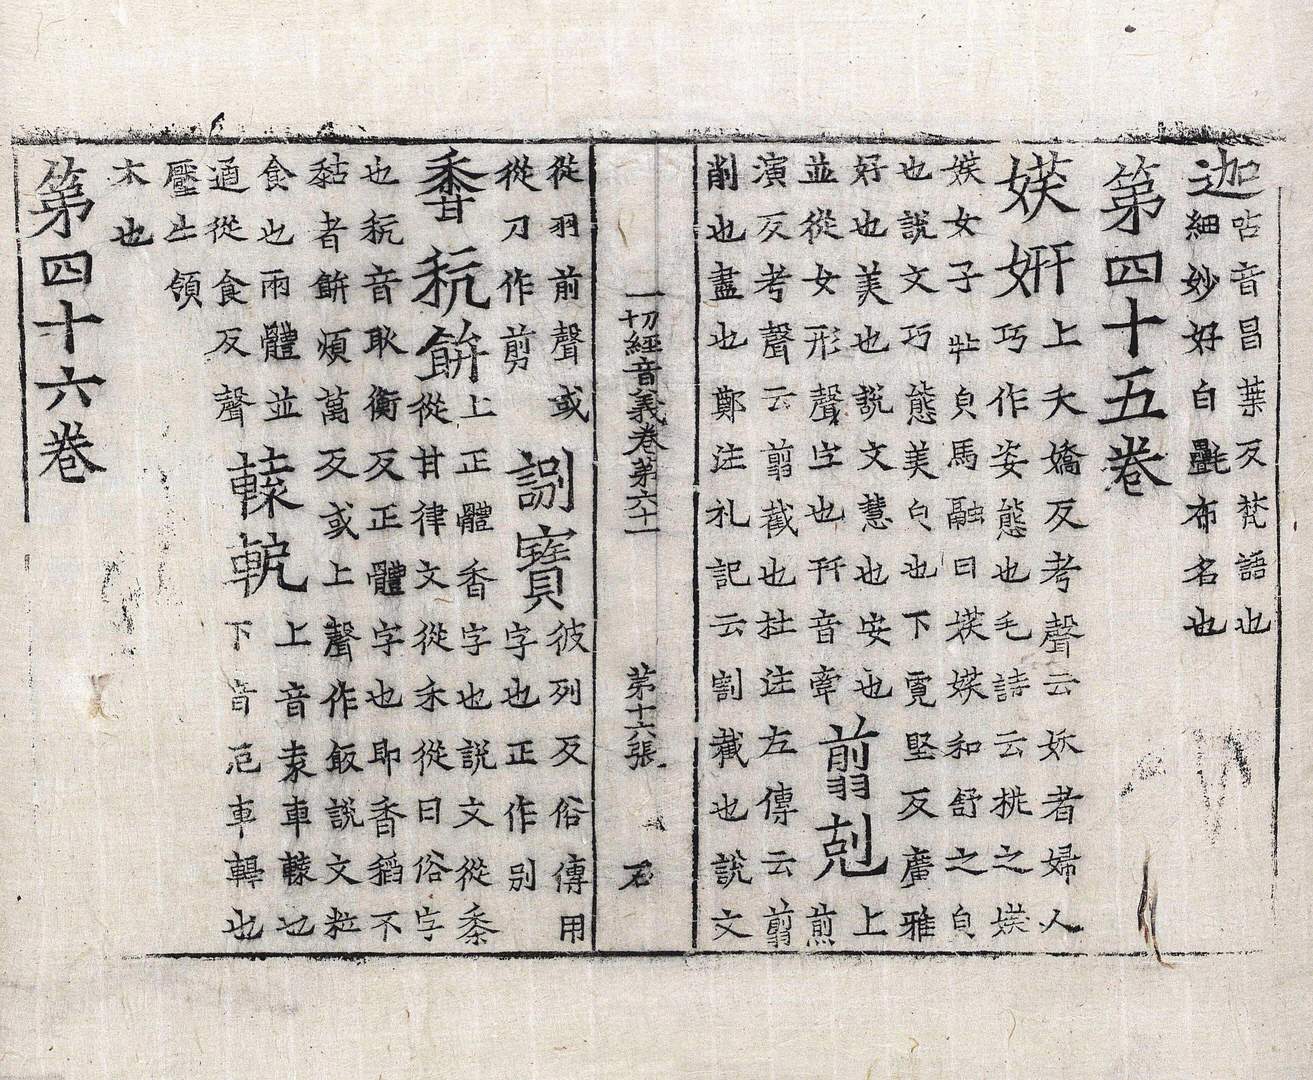 迦呫音昌葉反梵語也
細妙好白㲲布名也
第四十五卷
媄姸上夭嬌反考聲云妖者婦人
巧作姿態也毛詩云桃之媄
媄女子壯皃馬融曰媄媄和舒之皃
也說文巧態美皃也下霓堅反廣雅
好也美也說文慧也安也翦剋上
並從女形聲字也幵音牽煎
演反考聲云翦截也杜注左傳云翦
削也盡也鄭注礼記云割截也說文
一切經音義卷第六十一 第十六張
從羽前聲或𧧸寶彼列反俗傳用
從刀作剪字也正作別
𪏰秔餠上正體香字也說文從黍
從甘律文從禾從曰俗字
也秔音耿衡反正體字也即香稻不
黏者餠煩萬反或上聲作飯說文粒
食也兩體並轅軶上音袁車轅也
通從食反聲下音厄車轉也
壓牛領
木也
第四十六卷